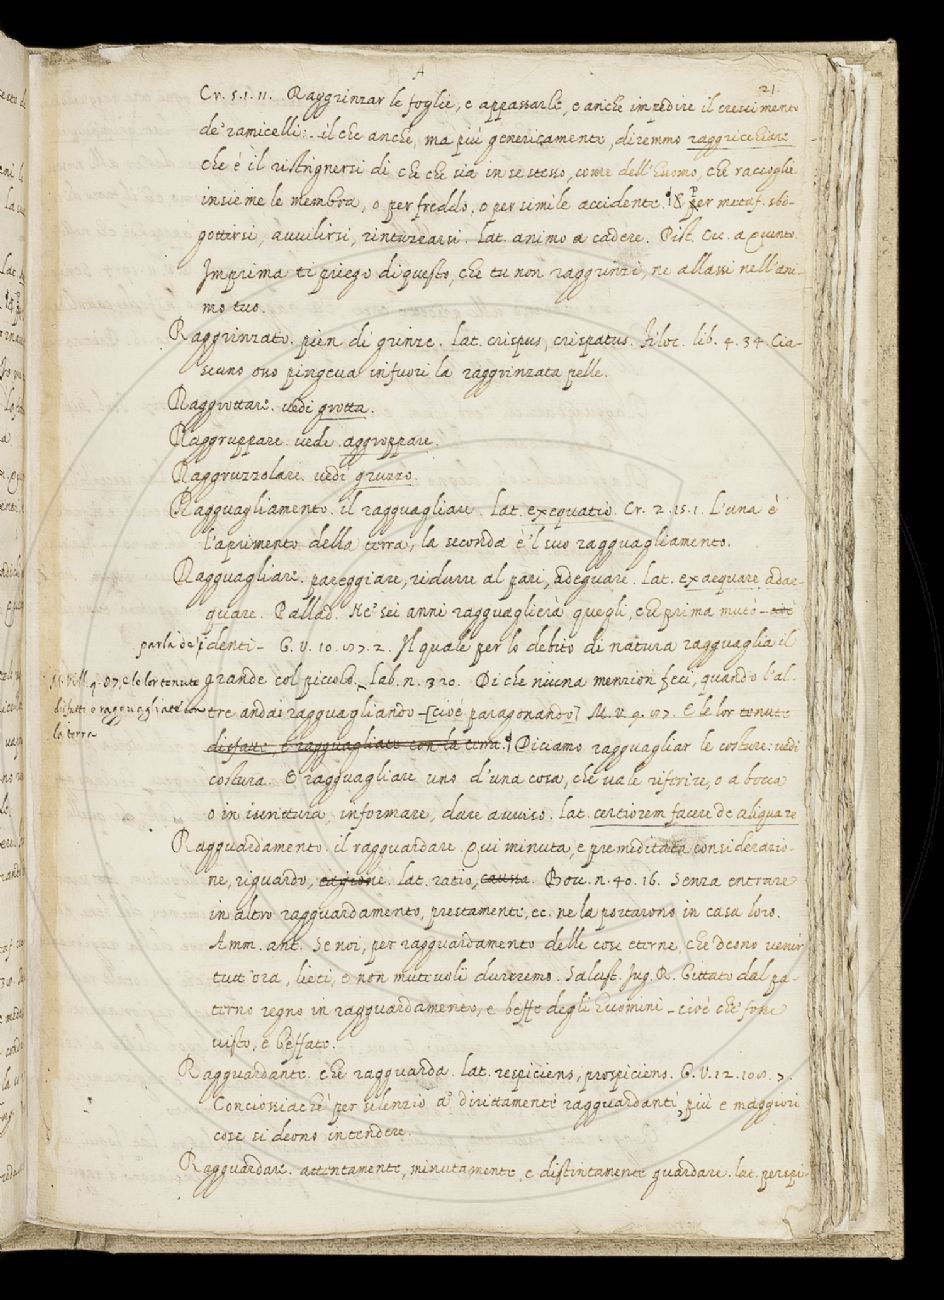 A
21.
Cr. 5. 1. 11. Raggrinzar le foglie, e appassarle, e anche impedire il crescimento
de' ramicelli: il che anche, ma più genericamente, diremmo raggricchiare
che è il ristrignersi di che che sia in se stesso, come dell'huomo, che raccoglie
insieme le membra, o per freddo, o per simile accidente. § per metaf. sbi-
gottirsi, avvilirsi, rinturzarsi. lat. animo a cadere. Pist. Cic. a Quinto.
Imprima ti priego di questo, che tu non raggrinzi, ne allassi nell'ani-
mo tuo.
Raggrinzato. pien di grinze. lat. crispus, crispatus. Filoc. lib. 4. 34. Cia-
scuno osso pingeva infuori la raggrinzata pelle.
Raggrottare. vedi grotta.
Raggruppare. vedi aggroppare.
Raggruzzolare. vedi gruzzo.
Ragguagliamento. il ragguagliare. lat. exequatio. Cr. 2. 15. 1. L'una è
l'aprimento della terra, la seconda è 'l suo ragguagliamento.
Ragguagliare. pareggiare, ridurre al pari, adeguare. lat. exaequare, adae-
quare. Pallad. Ne' sei anni ragguaglierà quegli, che prima mutò
parla de' denti - G. V. 10. 87. 2. Il quale per lo debito di natura ragguaglia il
M. Vill. 9. 87. E le lor tenute
disfatte e ragguagliate con
la terra
grande col piccolo. Lab. n. 320. Di che niuna menzion feci, quando l'al-
tre andai ragguagliando - [cioè paragonando] M. V. 9. 87. E le lor tenute
disfatte, e ragguagliate con la terra. § Diciamo ragguagliar le costure: vedi
costura. E ragguagliare uno d'una cosa, che vale riferire, o a bocca
o in iscrittura, informare, dare avviso. lat. certiorem facere de aliqua re
Ragguardamento. il ragguardare. Qui minuta, e premeditata considerazio-
ne, riguardo, cagione. lat. ratio, caussa. Bocc. n. 40. 16. Senza entrare
in altro ragguardamento, prestamente, ec. ne la portarono in casa loro.
Amm. ant. Se noi, per ragguardamento delle cose eterne, che deono venir
tutt'ora, lieti, e non mutevoli dureremo. Salust. Jug. R. Gittato dal pa-
terno regno in ragguardamento, e beffe degli huomini - cioè che fone
visto, e beffato.
Ragguardante. che ragguarda. lat. respiciens, prospiciens. G. V. 12. 108. 7.
Conciossiachè per silenzio a' dirittamente ragguardanti, più e maggiori
cose si deono intendere.
Ragguardare. attentamente, minutamente, e distintamente guardare. lat. perspi-